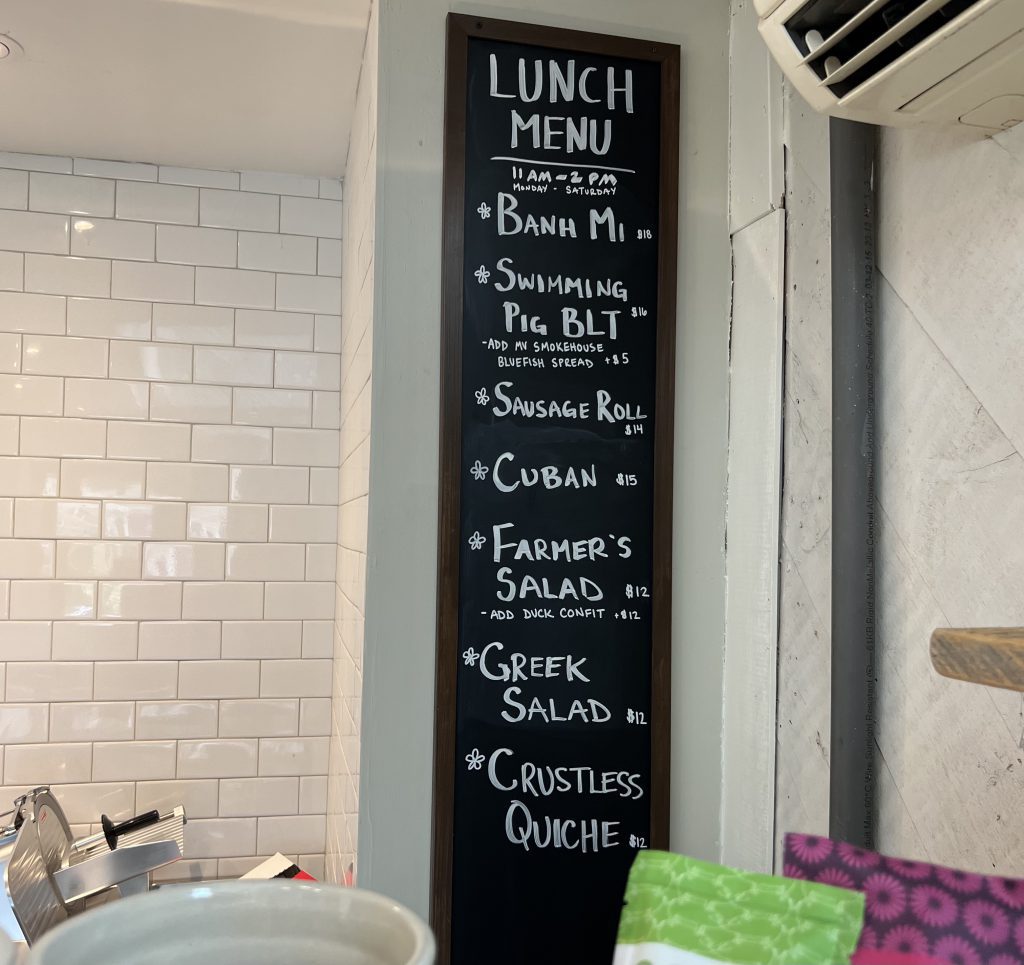 LUNCH
MENU
11 AM - 2 PM
MONDAY - SATURDAY
BANH MI $18
SWIMMING
PIG BLT $16
- ADD MV SMOKEHOUSE
BLUEFISH SPREAD + $5
SAUSAGE ROLL
$14
CUBAN $15
FARMER'S
SALAD $12
- ADD DUCK CONFIT + $12
GREEK
SALAD $12
CRUSTLESS
QUICHE $12